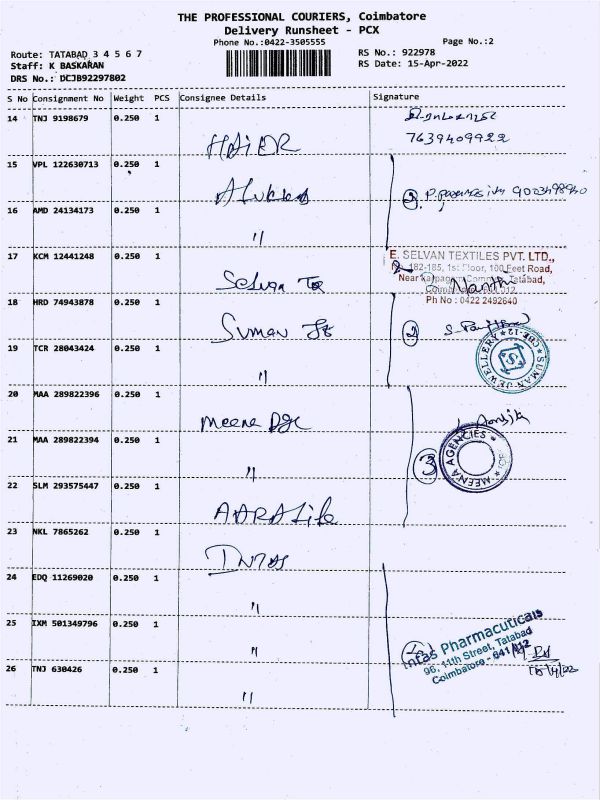 THE PROFESSIONAL COURIERS, Coimbatore
Delivery Runsheet - PCX
Phone No.:0422-3505555
Page No.:2
Route: TATABAD 3 4 5 6 7
RS No.: 922978
Staff: K BASKARAN
RS Date: 15-Apr-2022
DRS No.: DCJB92297802
S No Consignment No Weight PCS Consignee Details Signature
14 TNJ 9198679 0.250 1 HAIER
7639409922
15 VPL 122630713 0.250 1
16 AMD 24134173 0.250 1 〃
17 KCM 12441248 0.250 1 Selvan Tex
E. SELVAN TEXTILES PVT. LTD.,
182-185, 1st Floor, 100 Feet Road,
Near Kalpagam Complex, Tatabad,
Coimbatore - 641 012.
Ph No : 0422 2492640
18 HRD 74943878 0.250 1 Suman
2
SUMAN JEWELLERY CBE-12
19 TCR 28043424 0.250 1 〃
20 MAA 289822396 0.250 1 Meena
21 MAA 289822394 0.250 1 〃
3
MEENA AGENCIES
22 SLM 293575447 0.250 1 AARA Life
23 NKL 7865262 0.250 1 INTAS
24 EDQ 11269020 0.250 1 〃
25 IXM 501349796 0.250 1 〃
Intas Pharmacuticals
96, 11th Street, Tatabad
Coimbatore - 641 012
15/4/22
26 TNJ 630426 0.250 1 〃